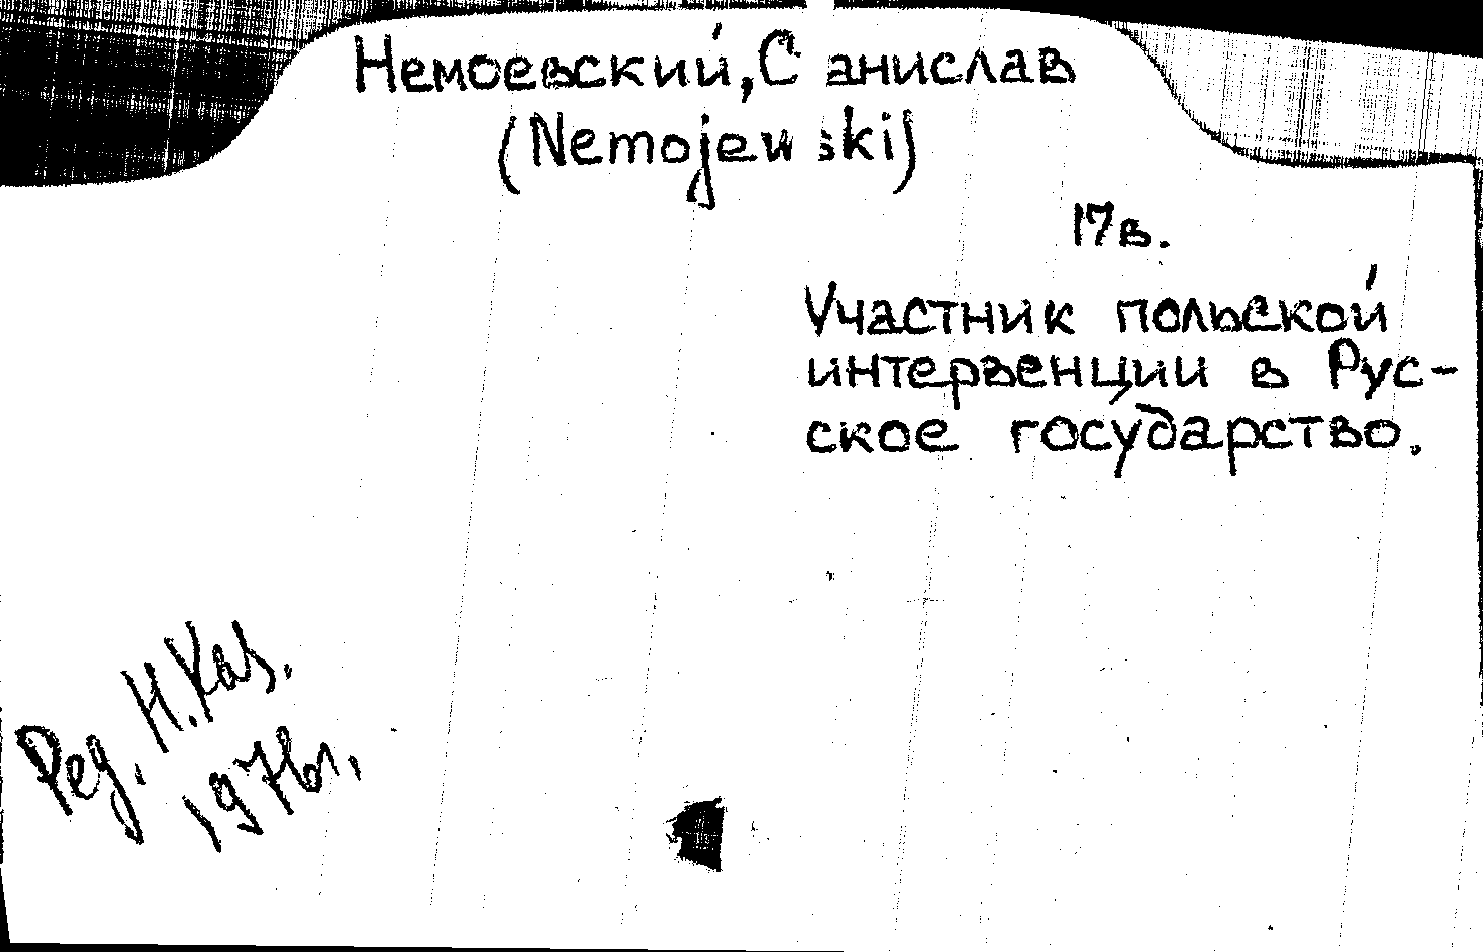 Немоевский, Станислав
(Nemojewski)
17в.
Участник польской
интервенции в Рус-
ское государство.
Ред. Н.Каз.
1976г.